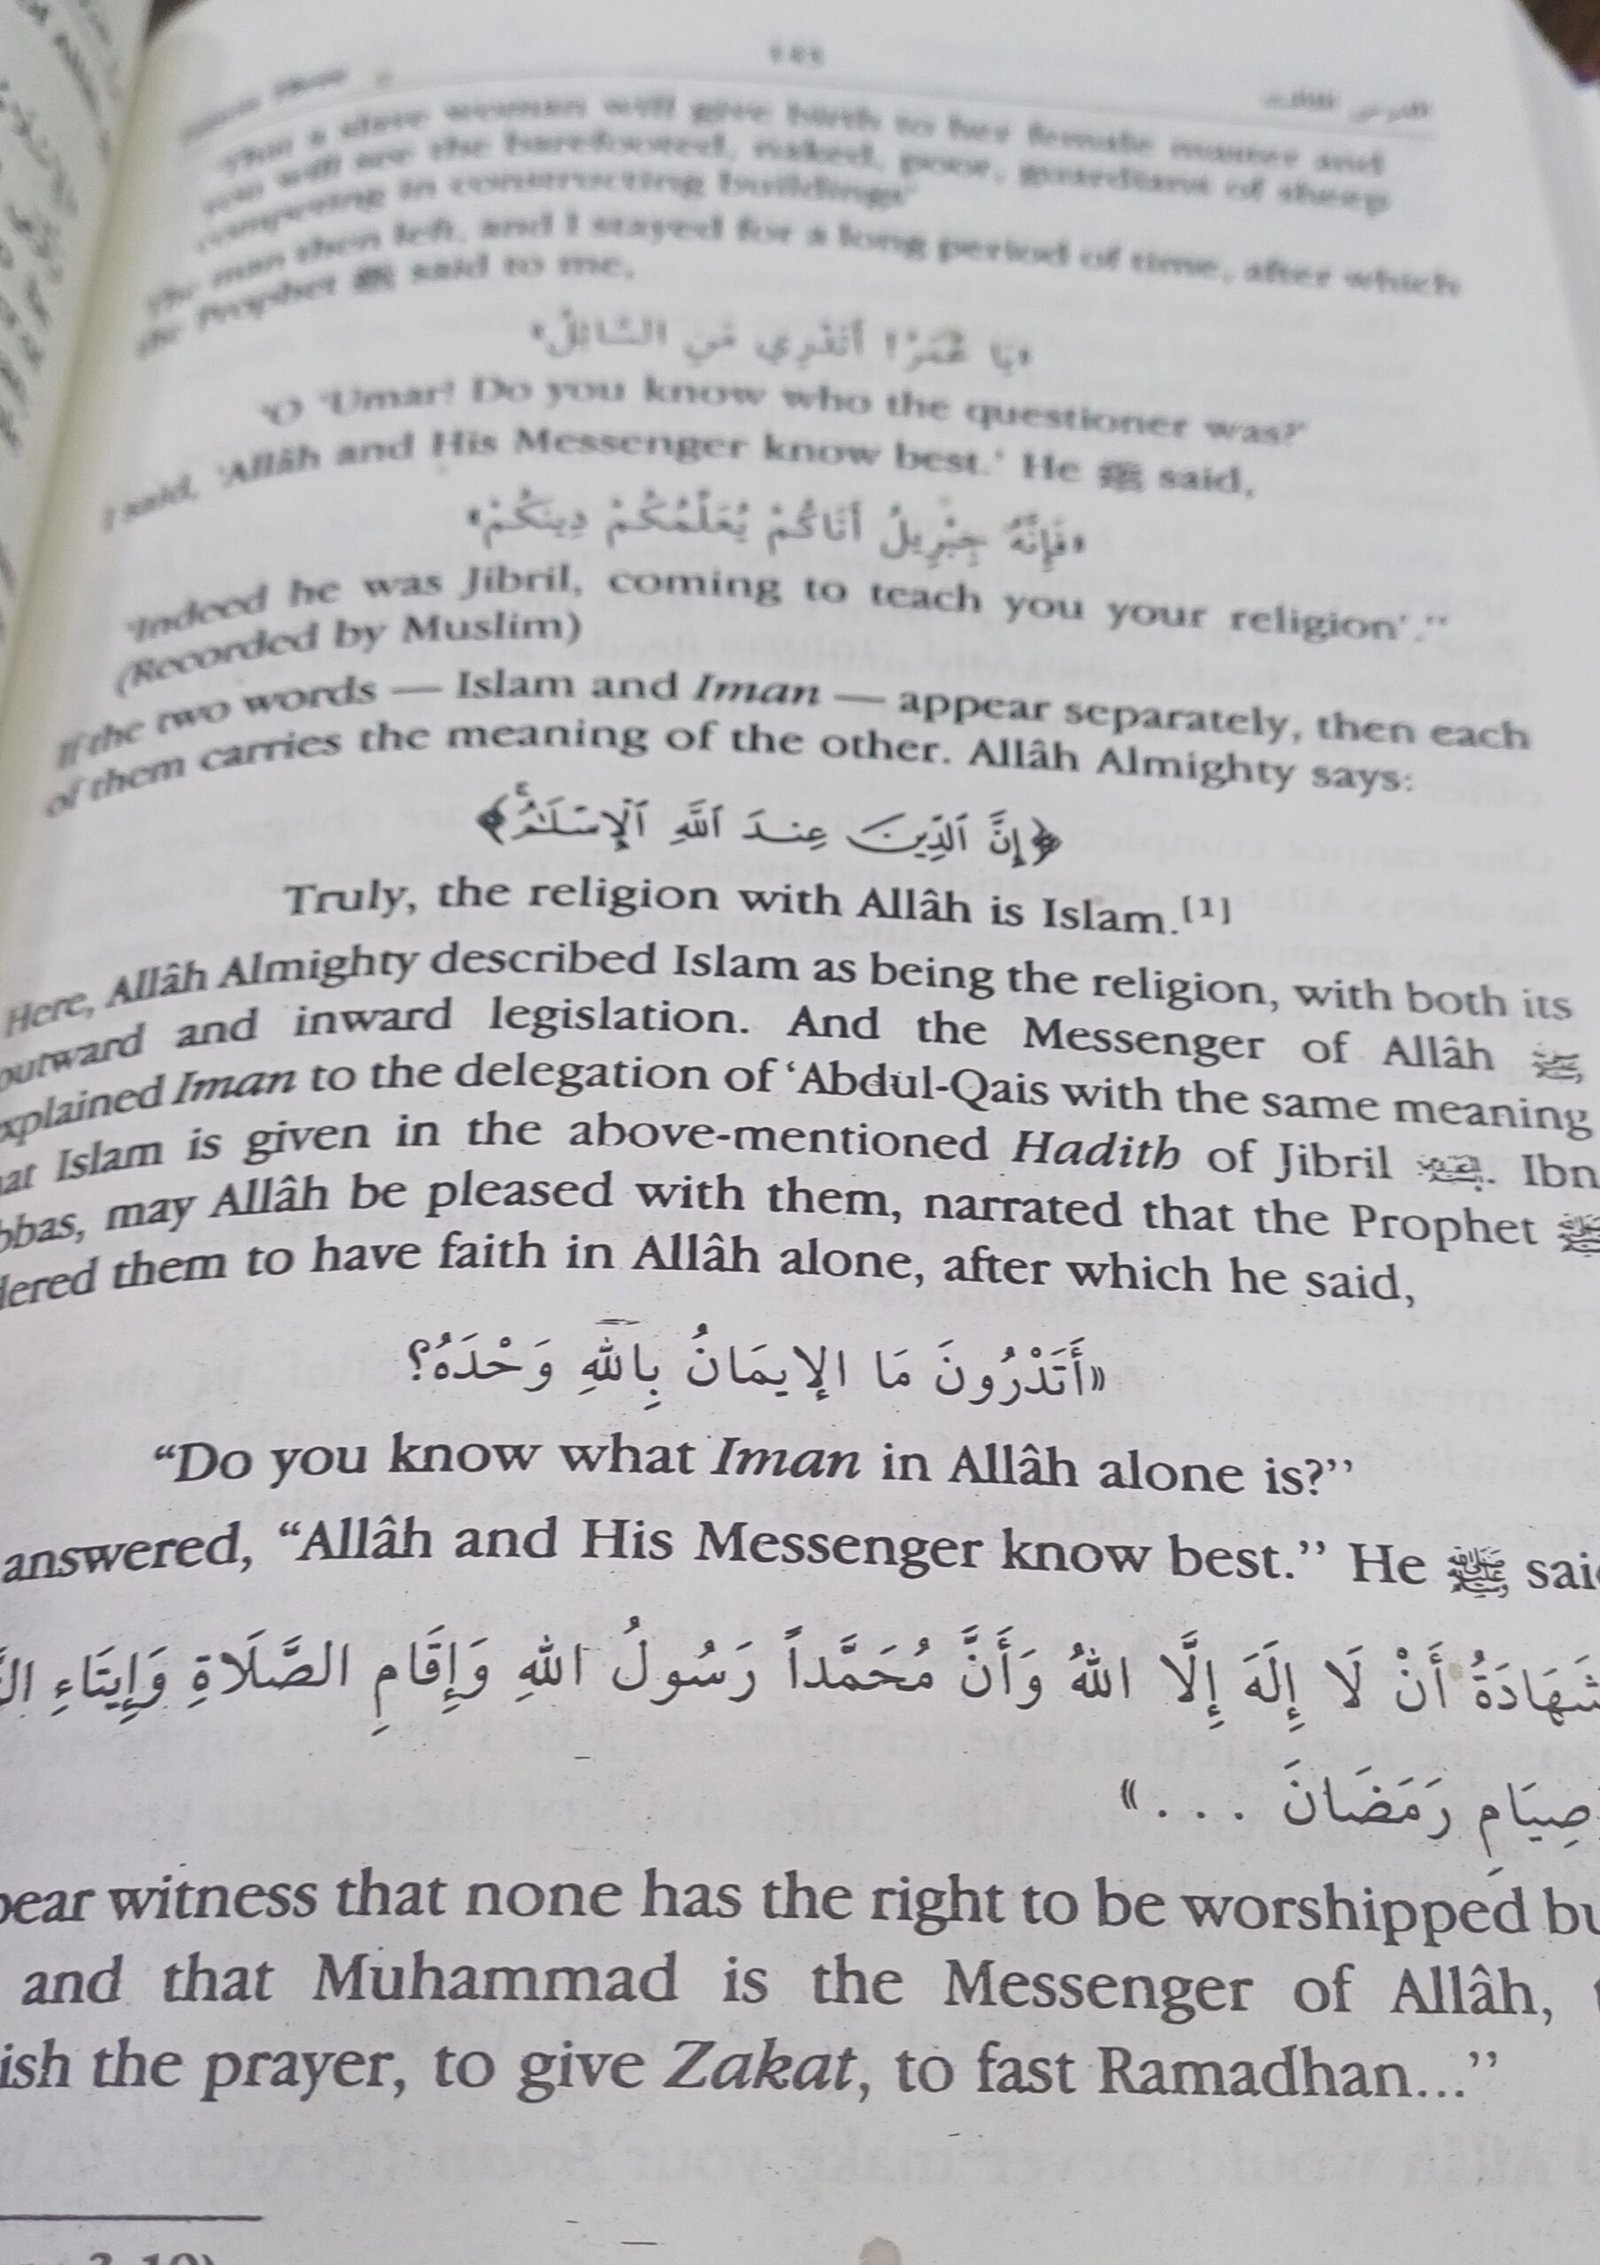 الدرس الثالث
That a slave woman will give birth to her female master and
you will see the barefooted, naked, poor, guardians of sheep
competing in constructing buildings'
The man then left, and I stayed for a long period of time, after which
the Prophet ﷺ said to me,
«يَا عُمَرُ! أَتَدْرِي مَنِ السَّائِلُ»
'O 'Umar! Do you know who the questioner was?'
I said, 'Allâh and His Messenger know best.' He ﷺ said,
«فَإِنَّهُ جِبْرِيلُ أَتَاكُمْ يُعَلِّمُكُمْ دِينَكُمْ»
'Indeed he was Jibril, coming to teach you your religion'.''
(Recorded by Muslim)
If the two words — Islam and Iman — appear separately, then each
of them carries the meaning of the other. Allâh Almighty says:
﴿إِنَّ ٱلدِّينَ عِندَ ٱللَّهِ ٱلْإِسْلَٰمُ ۗ﴾
Truly, the religion with Allâh is Islam.[1]
Here, Allâh Almighty described Islam as being the religion, with both its
outward and inward legislation. And the Messenger of Allâh ﷺ,
xplained Iman to the delegation of 'Abdul-Qais with the same meaning
at Islam is given in the above-mentioned Hadith of Jibril. Ibn
bbas, may Allâh be pleased with them, narrated that the Prophet ﷺ
dered them to have faith in Allâh alone, after which he said,
«أَتَدْرُونَ مَا الإِيمَانُ بِاللهِ وَحْدَهُ؟
“Do you know what Iman in Allâh alone is?''
answered, “Allâh and His Messenger know best.'' He ﷺ said
شَهَادَةُ أَنْ لَا إِلَهَ إِلَّا اللهُ وَأَنَّ مُحَمَّداً رَسُولُ اللهِ وَإِقَامِ الصَّلَاةِ وَإِيتَاءِ
صِيَامِ رَمَضَانَ . . .»
bear witness that none has the right to be worshipped bu
and that Muhammad is the Messenger of Allâh,
ish the prayer, to give Zakat, to fast Ramadhan...''